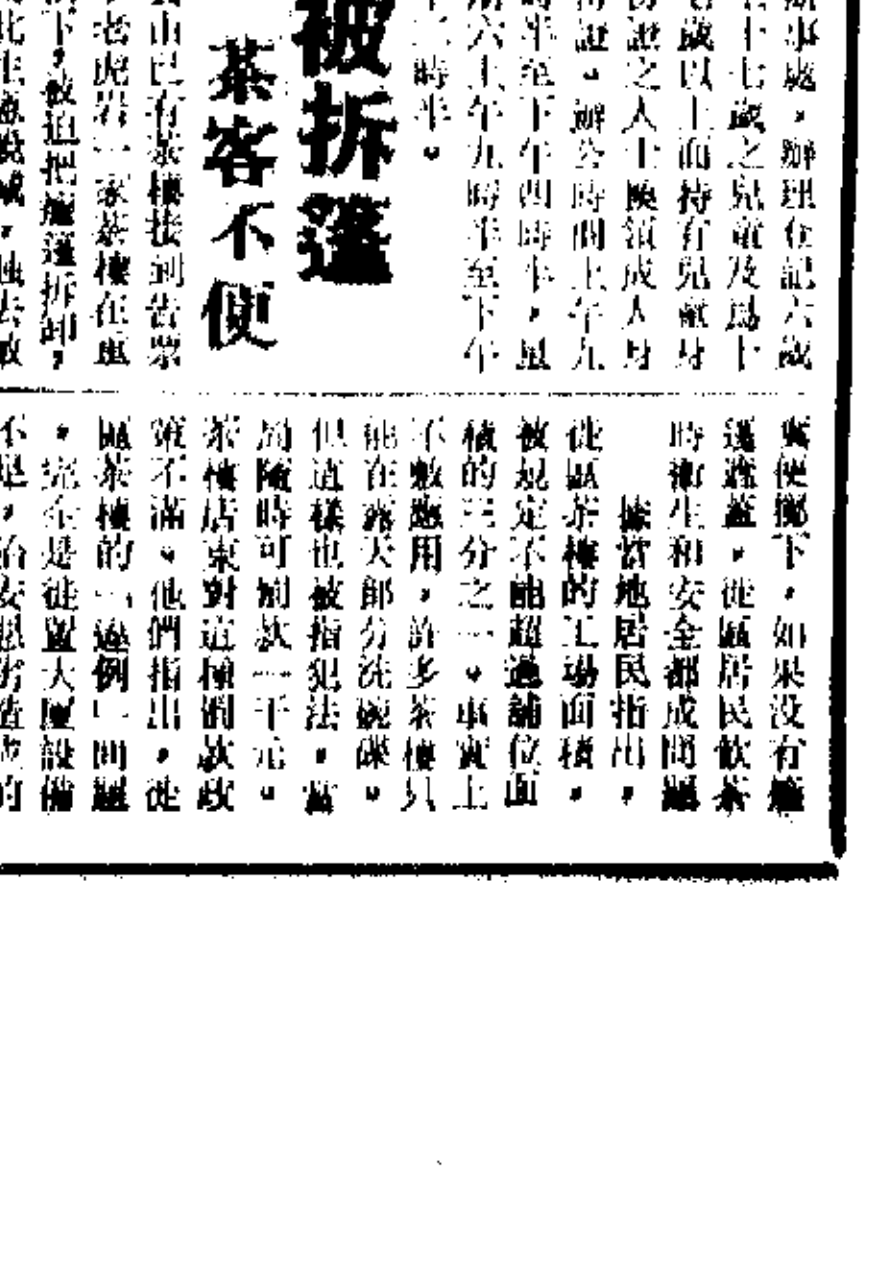 辦事處，辦理登記六歲
十七歲之兒童及爲十
歲以上而持有兒童身
份證之人士換領成人身
份證。辦公時間上午九
時半至下午四時半，星
期六上午九時半至下午
時半。
被拆篷
茶客不便
山已有茶樓接到告票
老虎岩一家茶樓在重
下，被迫把爐篷拆卸，
糞便擲下，如果没有爐
篷遮蓋，徙區居民飲茶
時衞生和安全都成問題
據當地居民指出，
徙區茶樓的工場面積，
被規定不能超過舖位面
積的三分之一。事實上
不敷應用，許多茶樓只
能在露天部分洗碗碟。
但這樣也被指犯法，當
局隨時可罰款一千元。
茶樓店東對這種罰款政
策不滿。他們指出，徙
區茶樓的「違例」問題
，完全是徙置大厦設備
不足，治安惡劣造成的